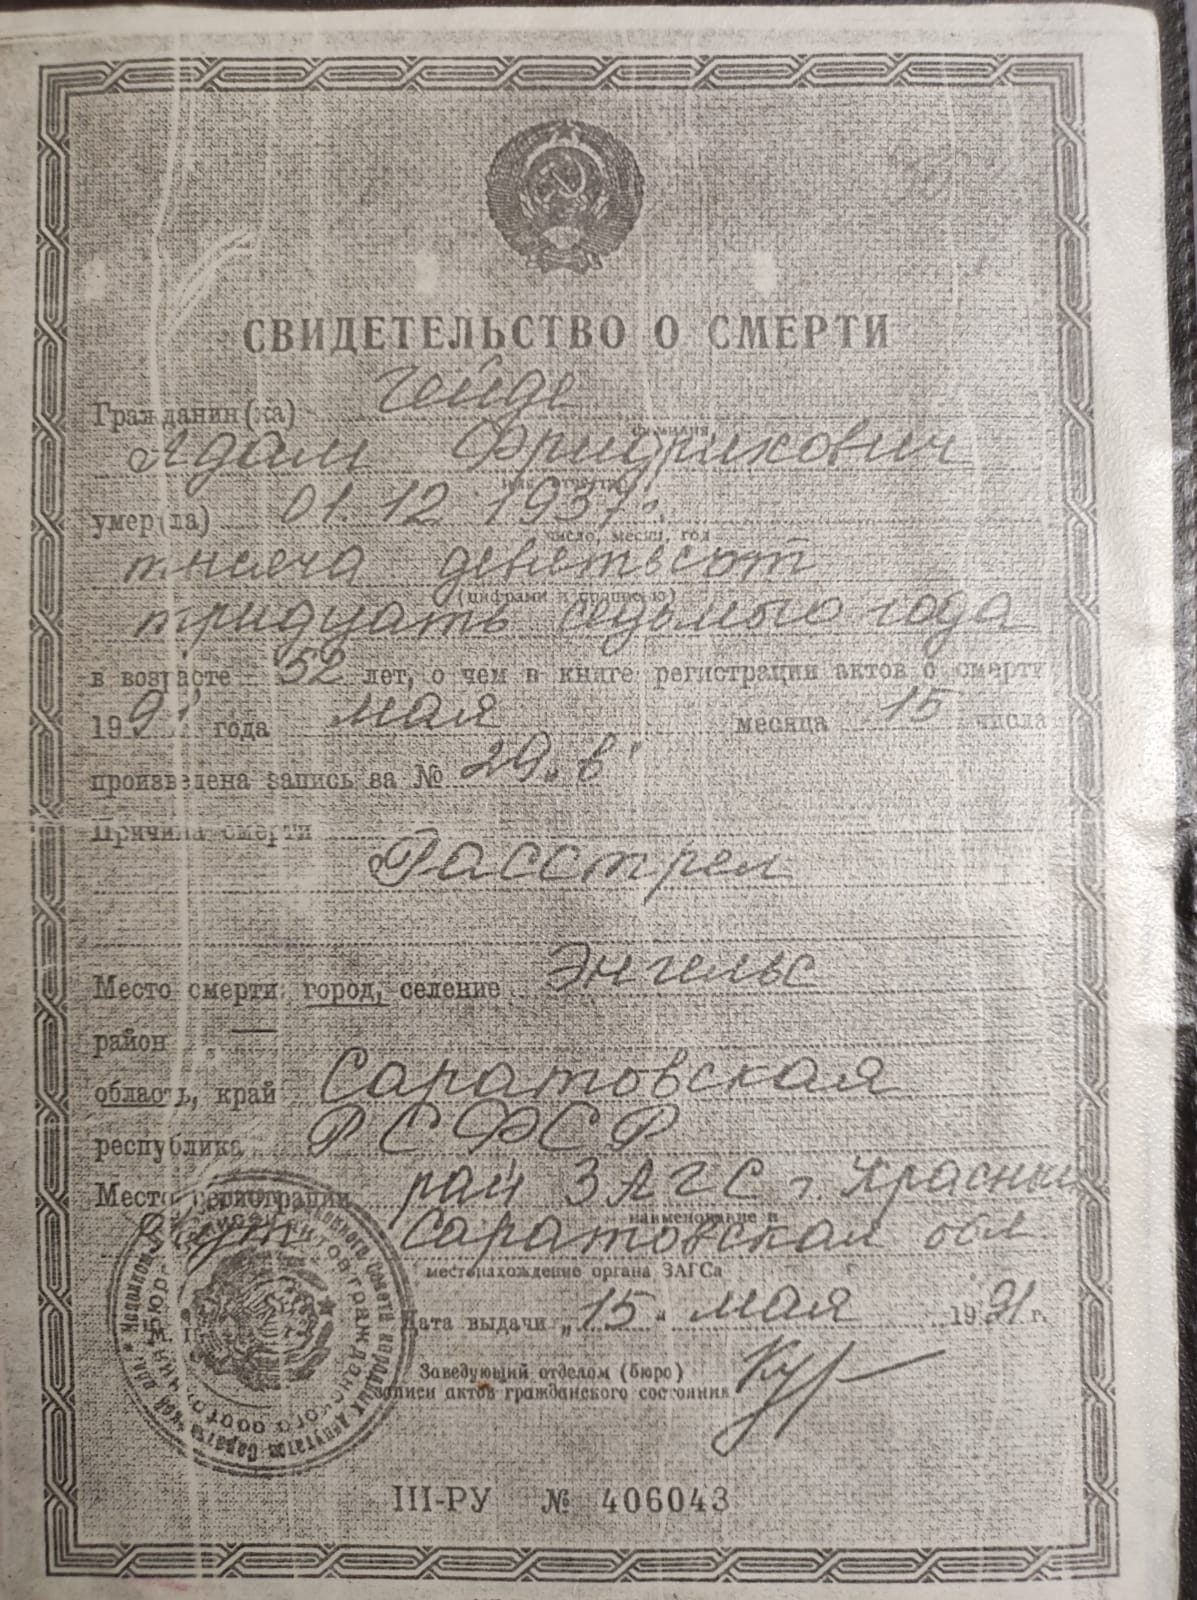 СВИДЕТЕЛЬСТВО О СМЕРТИ
Гейде
Гражданин(ка)
фамилия
Адам Фридрихович
имя, отчество
умер(ла) 01.12.1937г.
число, месяц, год
тысяча девятьсот
(цифрами и прописью)
тридцать седьмого года
в возрасте 52 лет, о чем в книге регистрации актов о смерти
1991 года мая месяца 15 числа
произведена запись за № 29 "в"
Причина смерти
Расстрел
Место смерти: город, селение Энгельс
район —
область, край Саратовская
республика РСФСР
Место регистрации рай ЗАГС г. Красный
наименование и
Кут Саратовская обл.
местонахождение органа ЗАГСа
М. П.
Дата выдачи „15“ мая 1991 г.
Заведующий отделом (бюро)
записи актов гражданского состояния
III-РУ № 406043